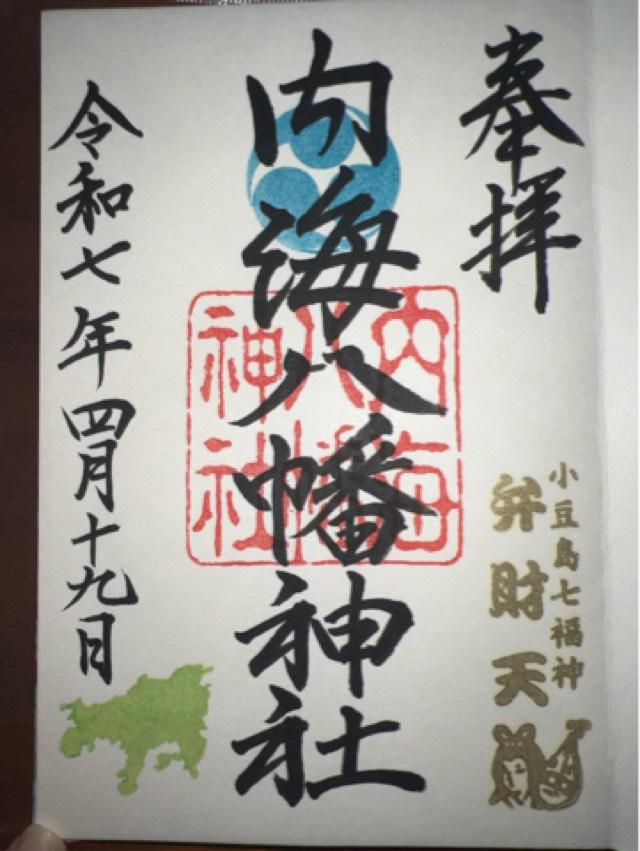 奉拝
小豆島七福神
弁財天
内海八幡神社
内海
八幡
神社
令和七年四月十九日